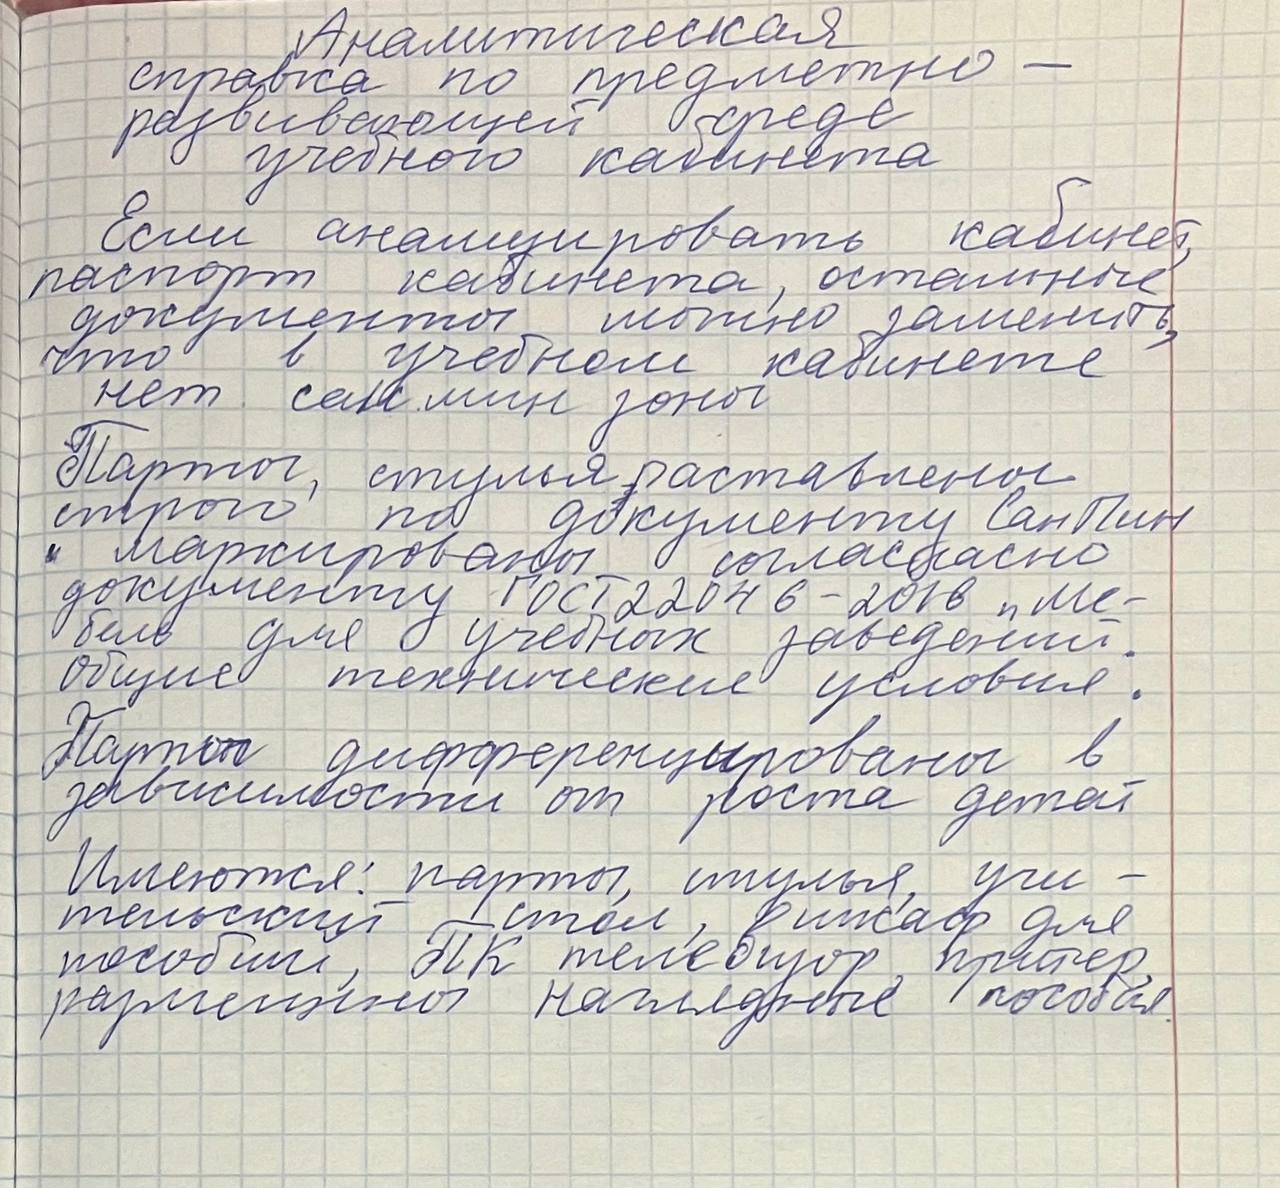 Аналитическая
справка по предметно –
развивающей среде
учебного кабинета
Если анализировать кабинет,
паспорт кабинета, остальные
документы можно заменить,
что в учебном кабинете
нет сан.мин зоны
Парты, стулья раставлены
строго по документу СанПин
и маркированы согласасно
документу ГОСТ 22046-2016 „Ме-
бель для учебных заведений.
Общие технические условия.
Парты дифференцырованы в
зависимости от роста детей
Имеются: парты, стулья, учи –
тельский стол, шкаф для
пособий, ПК телевизор, принтер,
размещены наглядные пособия.